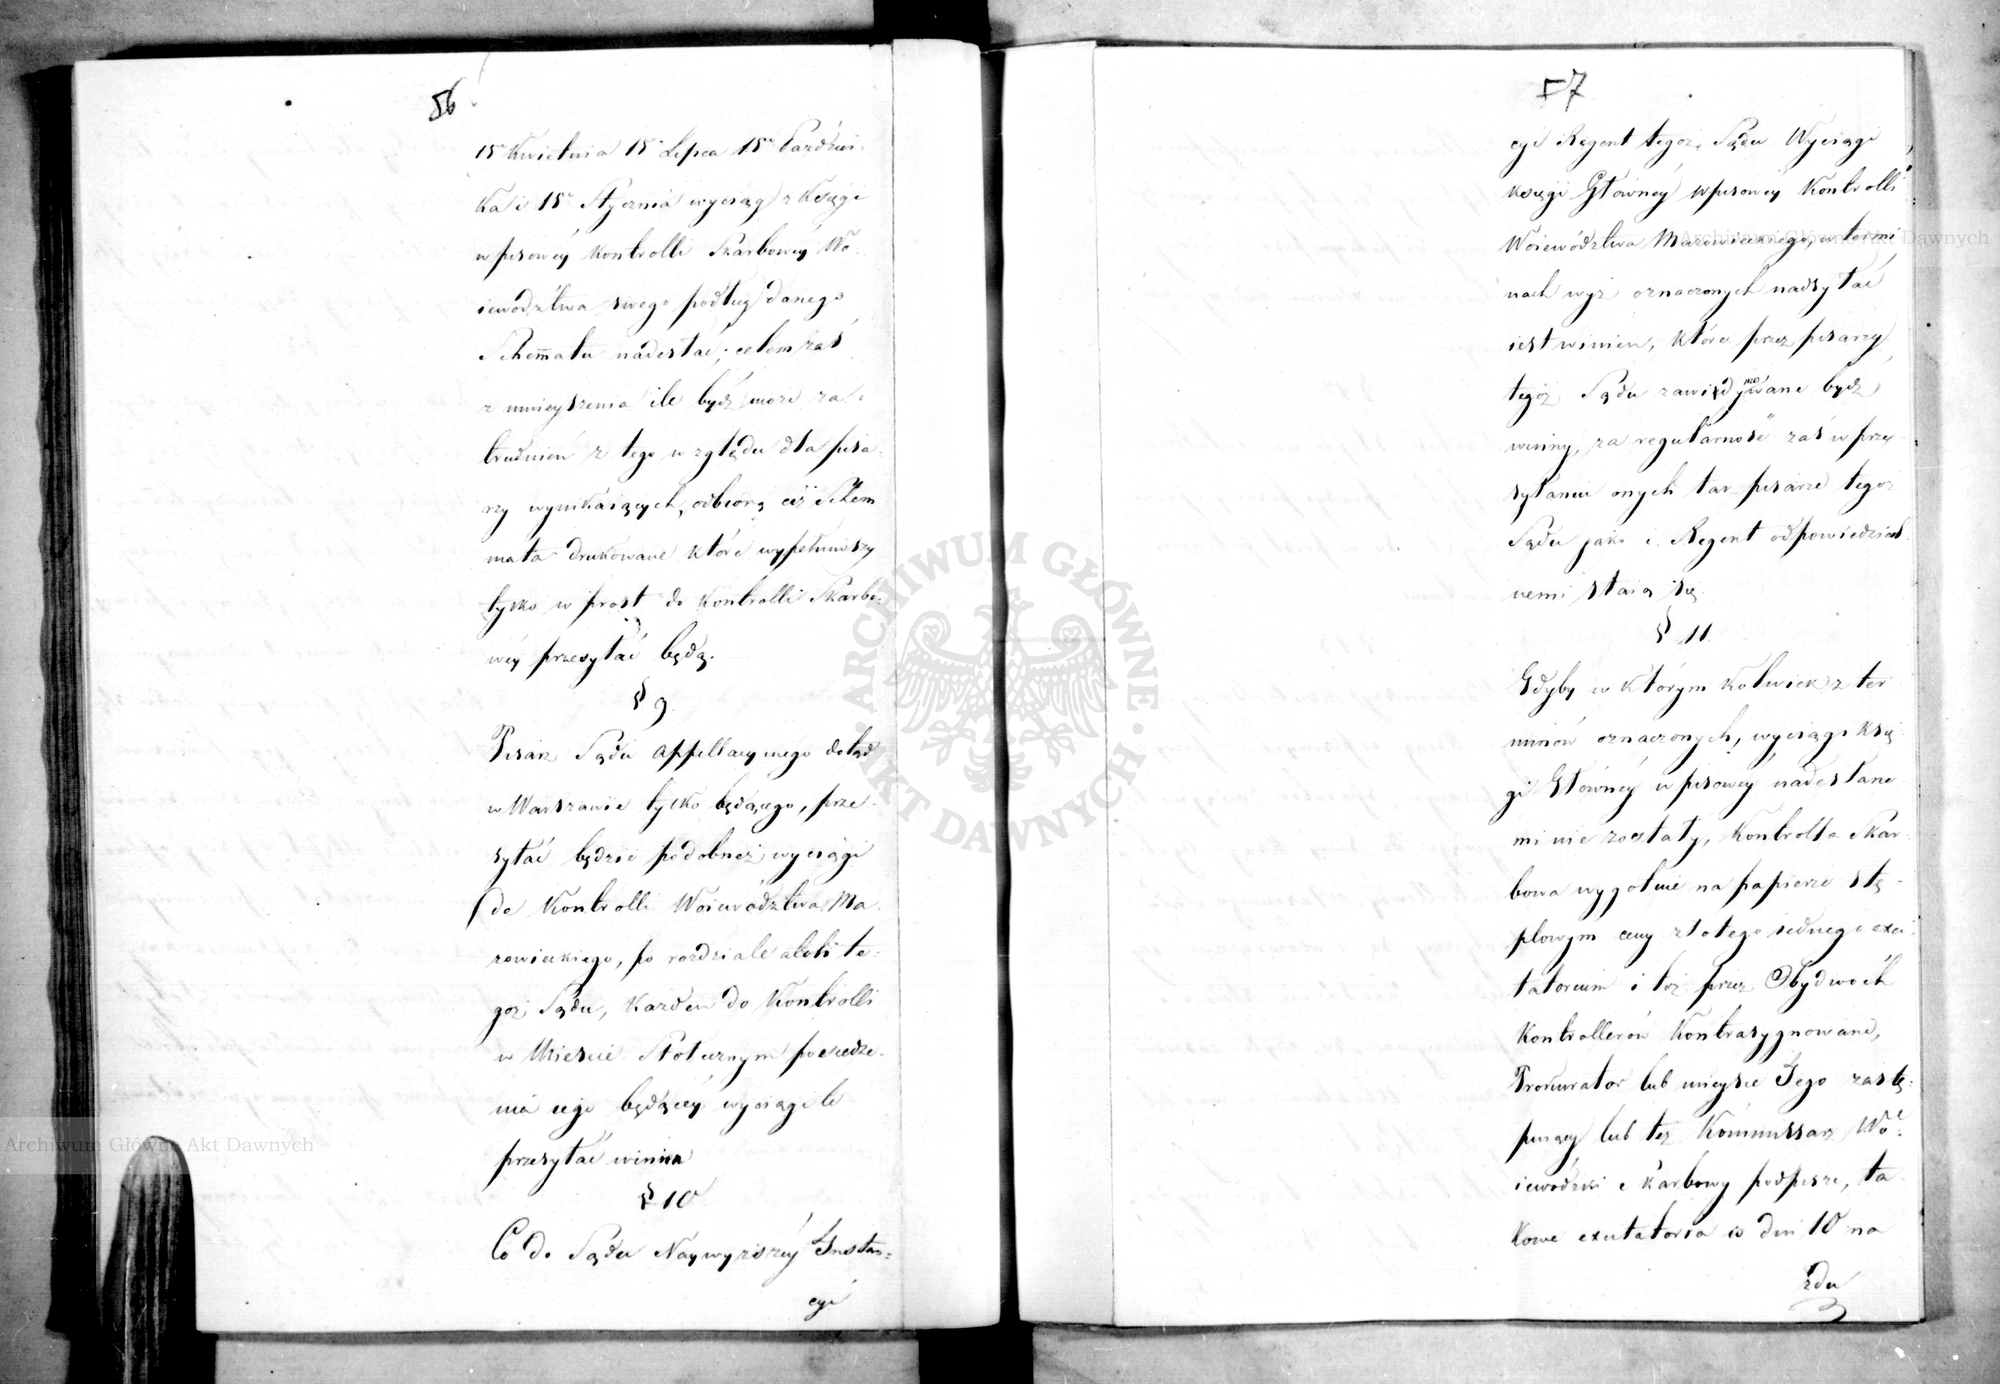 56
15º Kwietnia 15º Lipca 15º Paździei:
ka i 15º Stycznia wyciąg z Księgi
wpisowéy Kontrolli Skarbowéy Wo:
iewództwa swego podług danego
Schemmatu nadesłać; celem zaś
zmnieyszenia ile bydź może za:
trudnień z tego względu dla pisa:
rzy wynikaiących, odbiorą ciż Schem
mata drukowane które wypełniwszy
tylko wprost do Kontrolli Skarbo:
wéy przesyłać będą.
§ 9.
Pisarz Sądu Appellacyinego dotąd
w Warszawie tylko będącego, prze:
syłać będzie podobneż wyciągi
do Kontrolli Województwa Ma:
zowieckiego, po rozdziale
goż Sądu, każden do Kontrolli
w Mieście Stołecznym posiedze:
nia iego będącéy wyciągi te
przesyłać winien
§ 10
Co do Sądu Naywyższéy Instan:
cyi
57
cyi Regent tegoż Sądu Wyciągi
księgi Głównéy wpisowéy Kontrolli
Woiewództwa Mazowieckiego, w termi
nach wyż oznaczonych nadsyłać
iest winien, które przez pisarzy
tegoż Sądu bydź
winny, za regularność zaś w prze
syłaniu onych tak pisarze tegoż
Sądu jako i Regent odpowiedzial:
nemi staią się.
§ 11.
Gdyby w którym kolwiek z ter
minów oznaczonych, wyciągi księ
gi Głównéy wpisowéy nadesłane
mi nie zostały, Kontrolla Skar
bowa wygotuie na papierze stę:
plowym ceny złotego iednego exci
tatorium i toż przez Obydwóch
Kontrollerów Kontrasygnowane,
Prokurator lub mieysce Jego zastę:
puiący lub też Kommissarz Wo:
iewódzki Skarbowy podpisze, ta
kowe excitatoria w dni 10 na
zdu
Archiwum Główne Akt Dawnych
Archiwum Główne Akt Dawnych
ARCHIWUM GŁÓWNE · AKT DAWNYCH ·